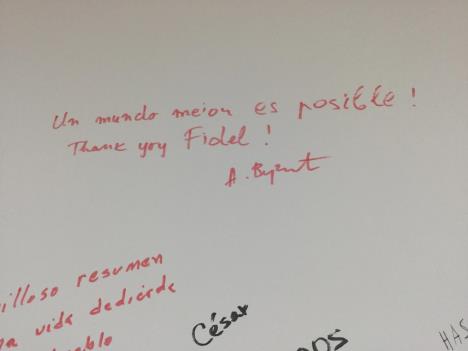 Un mundo mejor es posible !
Thank you Fidel !
A.
illoso resumen
a vida dedicada
César
HAS